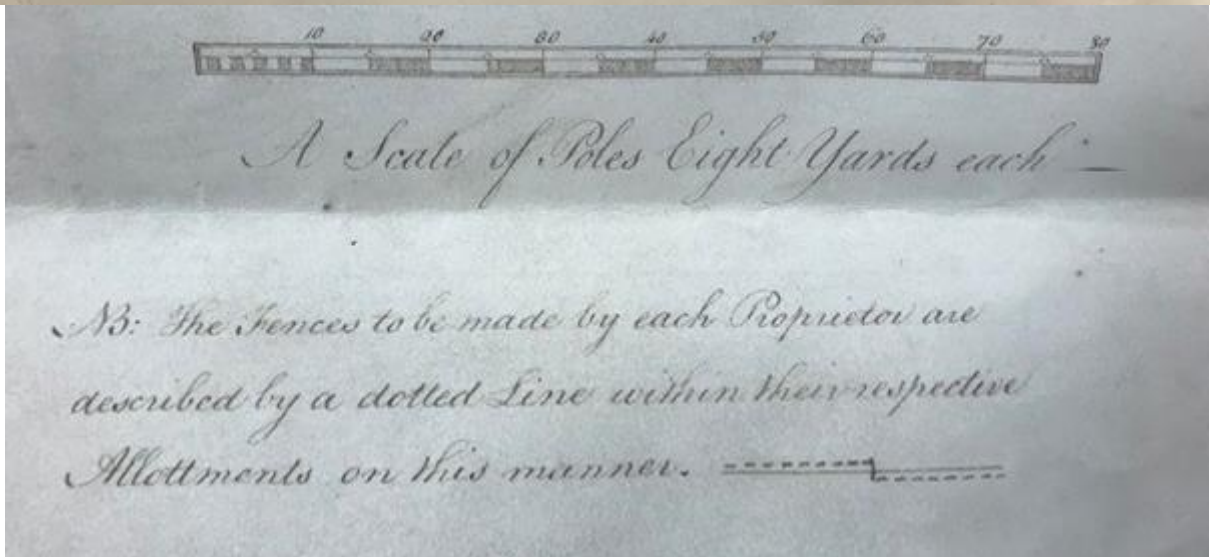 10 20 30 40 50 60 70 80
A Scale of Poles Eight Yards each
NB: The Fences to be made by each Proprietor are
described by a dotted Line within their respective
Allottments on this manner.